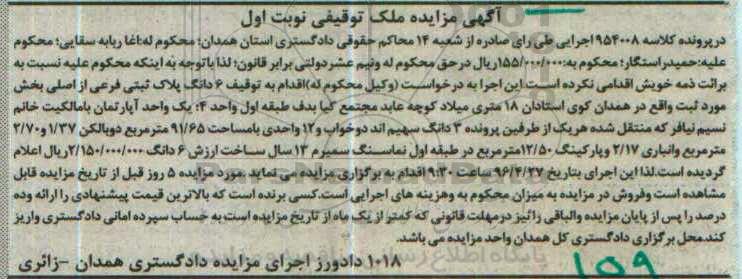 آگهی مزایده ملک توقیفی نوبت اول
درپرونده کلاسه ۹۵۴۰۰۸ اجرایی طی رای صادره از شعبه ۱۴ محاکم حقوقی دادگستری استان همدان؛ محکوم له:آغا ربابه سقایی؛ محکوم
علیه:حمیدراستگار؛ محکوم به:۱۵۵/۰۰۰/۰۰۰ریال درحق محکوم له ونیم عشردولتی برابر قانون؛ لذا باتوجه به اینکه محکوم علیه نسبت به
برائت ذمه خویش اقدامی نکرده است این اجرا به درخواست (وکیل محکوم له)اقدام به توقیف ۶ دانگ پلاک ثبتی فرعی از اصلی بخش
مورد ثبت واقع در همدان کوی استادان ۱۸ متری میلاد کوچه عابد مجتمع کیا بدف طبقه اول واحد ۴؛ یک واحد آپارتمان بامالکیت خانم
نسیم نیافر که منتقل شده هریک از طرفین پرونده ۳ دانگ سهیم اند دوخواب و۱۲ واحدی بامساحت ۹۱/۶۵ مترمربع دوبالکن ۱/۳۷ و۲/۷۰
مترمربع وانباری ۲/۱۷ وپارکینگ ۱۲/۵۰مترمربع در طبقه اول نماسنگ سمیرم ۱۳ سال ساخت ارزش ۶ دانگ ۲/۱۵۰/۰۰۰/۰۰۰ریال اعلام
گردیده است.لذا این اجرای بتاریخ ۹۶/۴/۲۷ ساعت ۹:۳۰ اقدام به برگزاری مزایده می نماید مورد مزایده ۵ روز قبل از تاریخ مزایده قابل
مشاهده است وفروش در مزایده به میزان محکوم به وهزینه های اجرایی است.کسی برنده است که بالاترین قیمت پیشنهادی را ارائه وده
درصد را پس از پایان مزایده والباقی رانیز درمهلت قانونی که کمتر از یک ماه از تاریخ مزایده است به حساب سپرده امانی دادگستری واریز
کند.محل برگزاری دادگستری کل همدان واحد مزایده می باشد.
۱۰۱۸ دادورز اجرای مزایده دادگستری همدان -زائری
۱۵۹